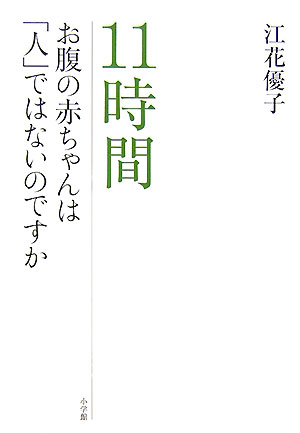 江花優子
11時間
お腹の赤ちゃんは
「人」ではないのですか
小学館